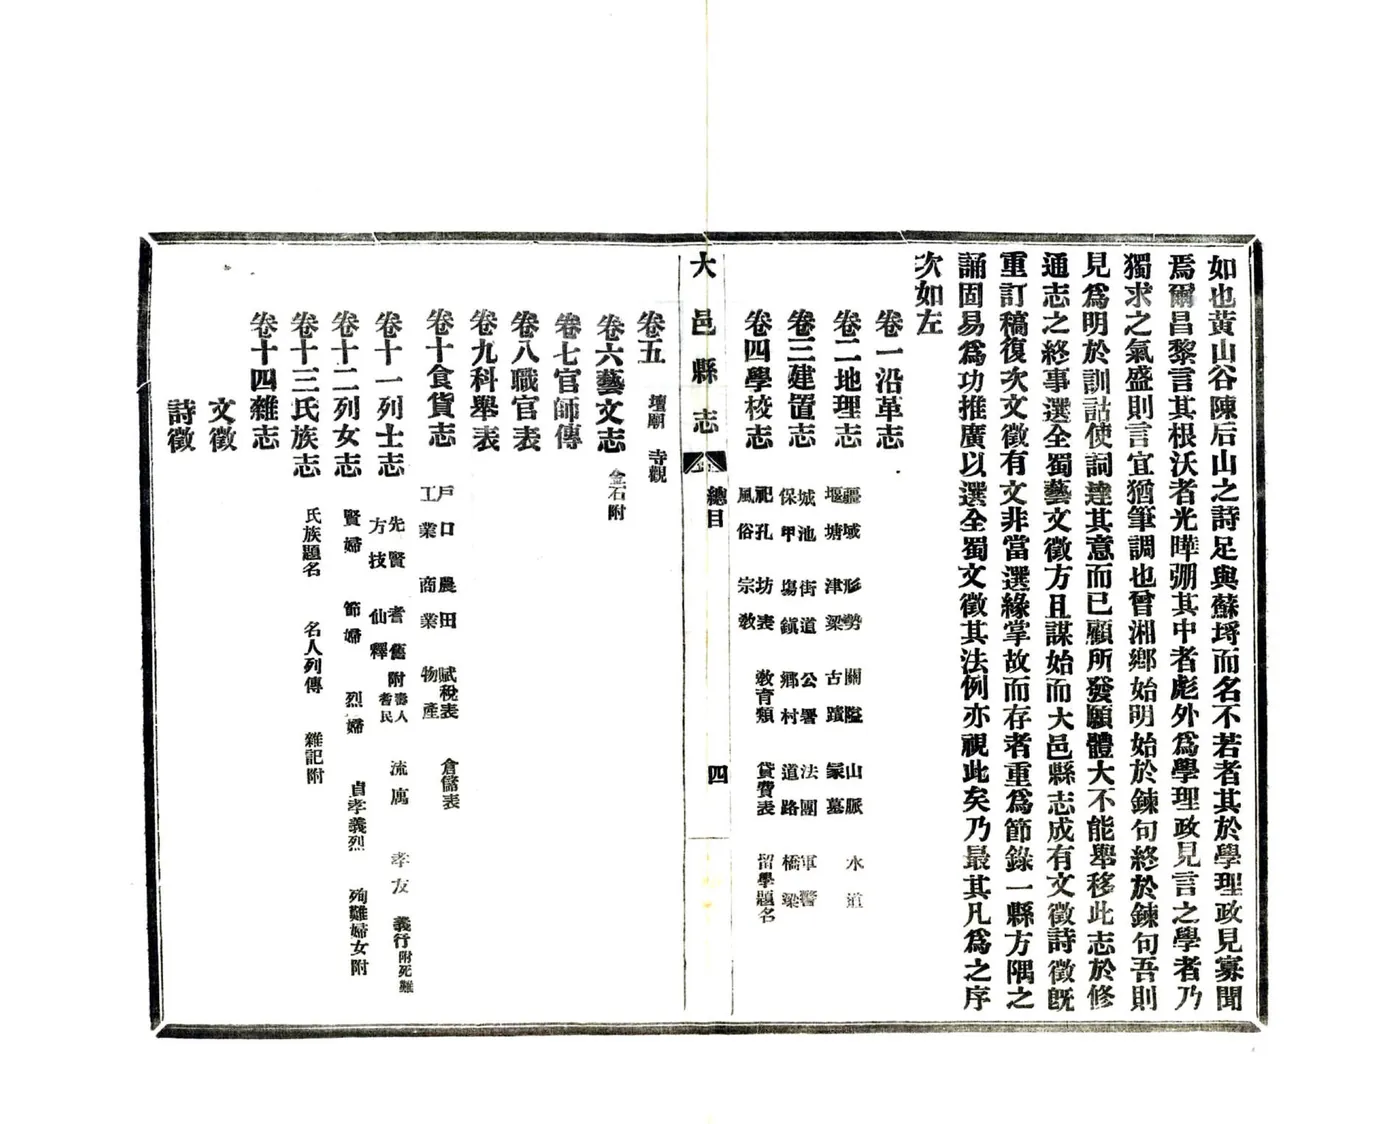 如也黃山谷陳后山之詩足與蘇埒而名不若者其於學理政見寡聞
焉爾昌黎言其根沃者光曄弸其中者彪外爲學理政見言之學者乃
獨求之氣盛則言宜猶筆調也曾湘鄉始明始於鍊句終於鍊句吾則
見爲明於訓詁使詞達其意而已顧所發願體大不能舉移此志於修
通志之終事選全蜀藝文徵方且謀始而大邑縣志成有文徵詩徵旣
重訂稿復次文徵有文非當選緣掌故而存者重爲節錄一縣方隅之
誦固易爲功推廣以選全蜀文徵其法例亦視此矣乃最其凡爲之序
次如左
卷一沿革志
卷二地理志 疆域 形勢 關隘 山脈 水道
堰塘 津梁 古蹟 冢墓
卷三建置志 城池 街道 公署 法團 軍警
保甲 場鎮 鄉村 道路 橋梁
卷四學校志 祀孔 坊表 教育類 貸費表 留學題名
風俗 宗教
大邑縣志 總目 四
卷五 壇廟 寺觀
卷六藝文志 金石附
卷七官師傳
卷八職官表
卷九科舉表
卷十食貨志 戶口 農田 賦稅表 倉儲表
工業 商業 物產
卷十一列士志 先賢 耆舊附壽人耆民 流寓 孝友 義行附死難
方技 仙釋
卷十二列女志 賢婦 節婦 烈婦 貞孝義烈 殉難婦女附
卷十三氏族志 氏族題名 名人列傳 雜記附
卷十四雜志
文徵
詩徵